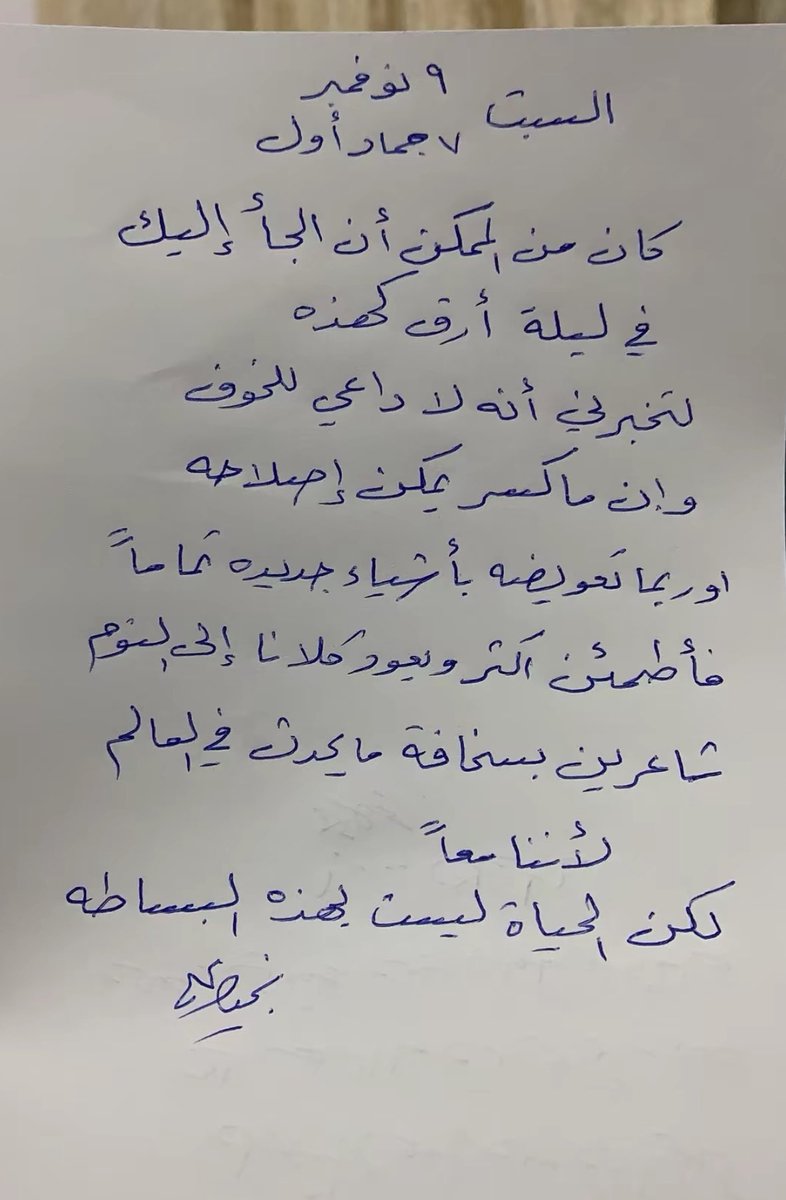 ٩ نوفمبر
السبت
٧ جماد أول
كان من الممكن أن الجأ إليك
في ليلة أرق كهذه
لتخبرني أنه لا داعي للخوف
وإن ما كسر يمكن إصلاحه
او ربما تعويضه بأشياء جديده تماماً
فأطمئن اكثر ويعود كلانا إلى النوم
شاعرين بسخافة ما يحدث في العالم
لأننا معاً
لكن الحياة ليست بهذه البساطه